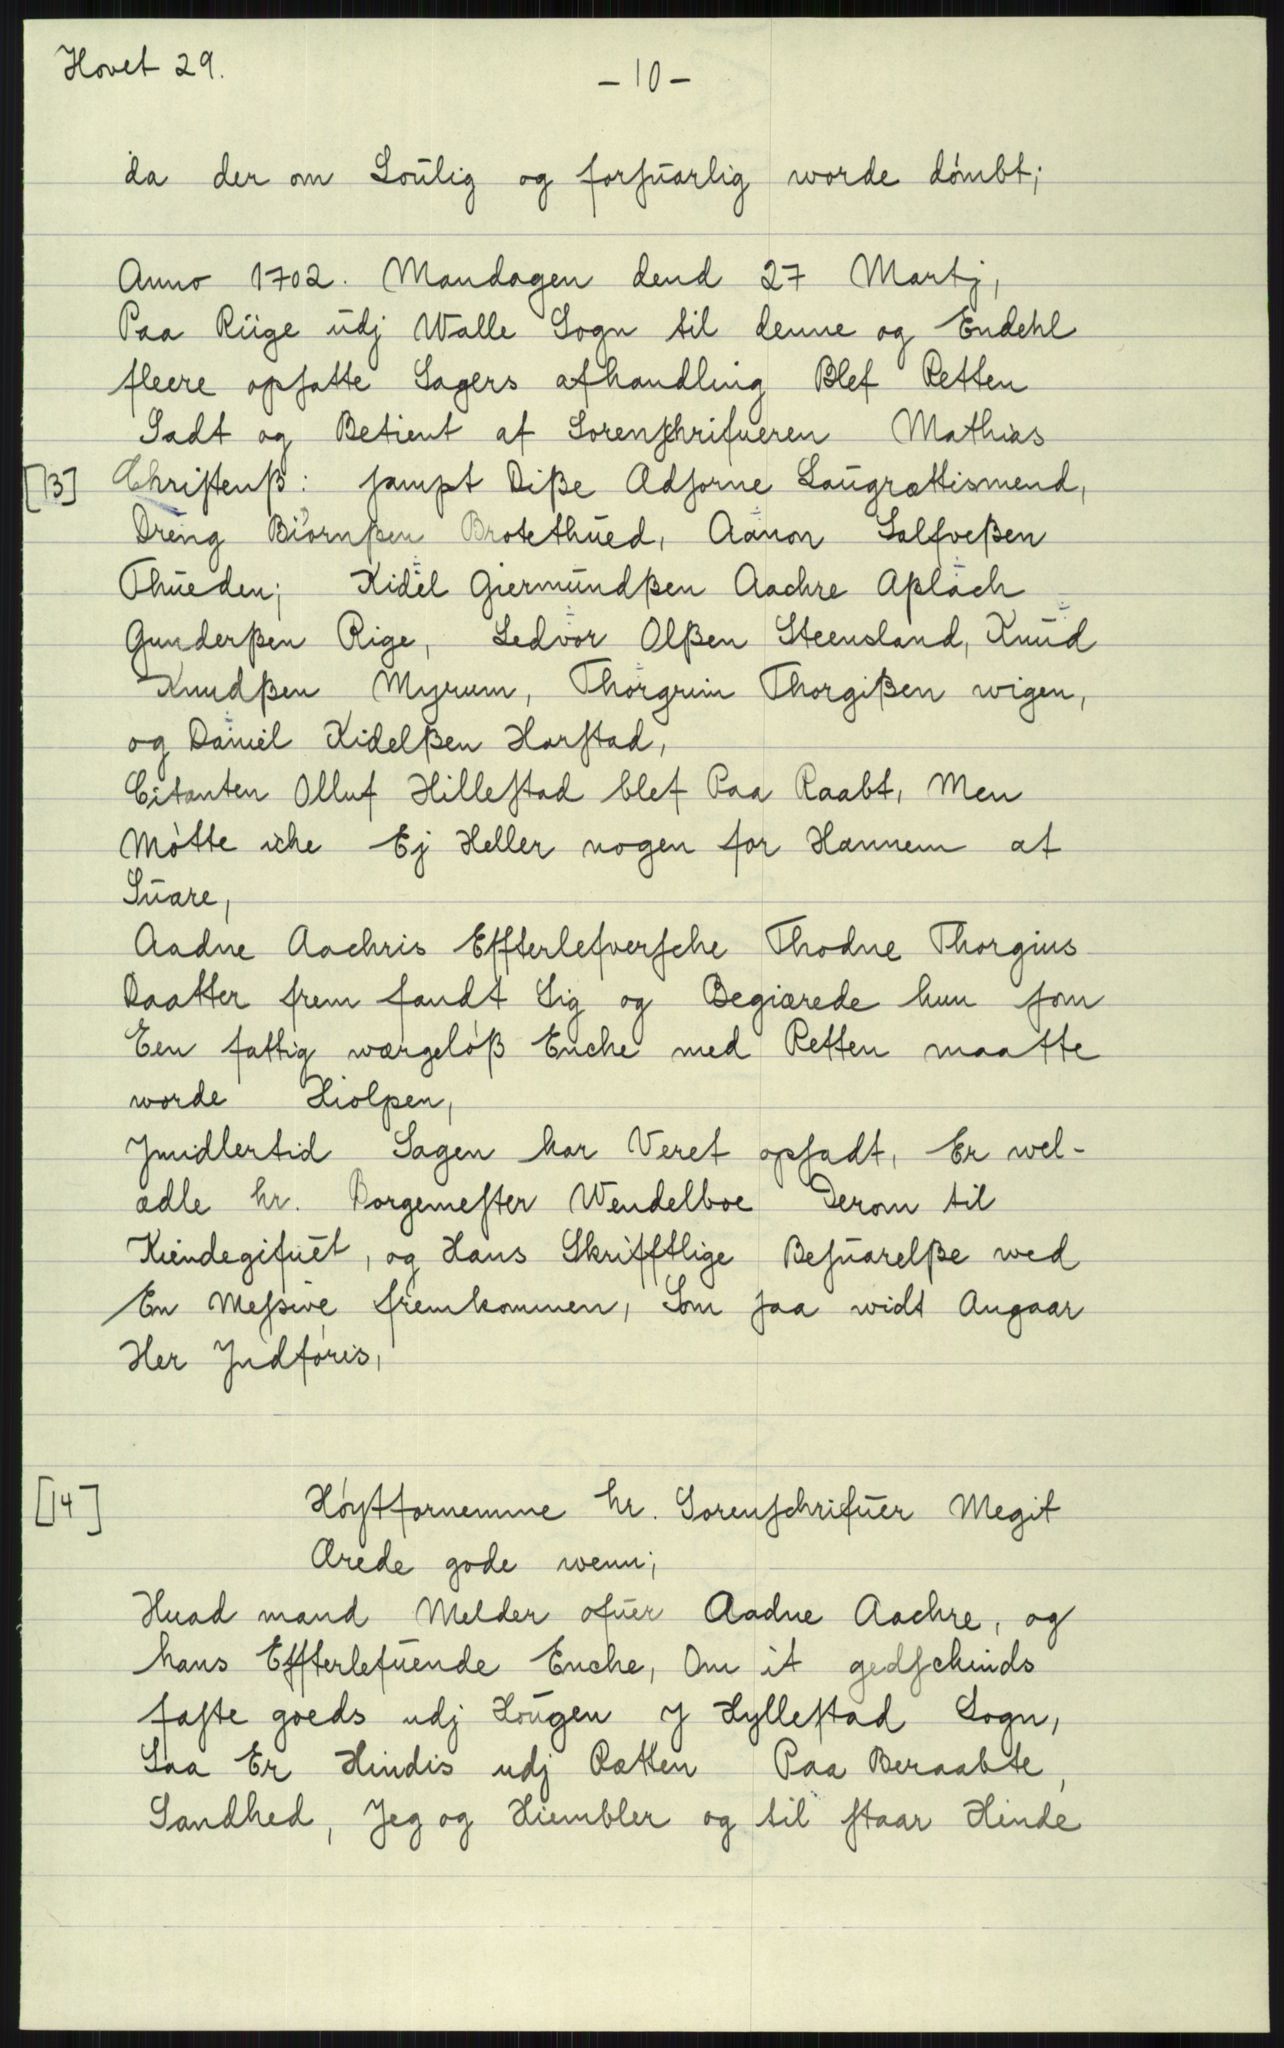 Hovet 29.
- 10 -
da der om Loulig og forsuarlig worde dómbt;
Anno 1702. Mandagen dend 27 Martj,
Paa Riige udj Walle Sogn til denne og Endehl
fleere opsatte Sagers afhandling Blef Retten
Sadt og Betient af Sorenschrifueren Mathias
[13] Christenß: sampt Diße Adsorne Laugrættismend,
Dreng Biórnßen Brotethued, Aanon Salfveßen
Thueden; Kidel Giermundßen Aachre Aslach
Gunderßen Rige, Ledvor Olßen Steensland, Knud
Knudßen Myrum, Thorgrim Thorgißen wigen,
og Daniel Kidelßen Harstad,
Citanten Olluf Hillestad blef Paa Raabt, Men
Mótte iche Ej Heller nogen for Hannem at
Suare,
Aadne Aachris Effterlefversche Thodne Thorgius
Daatter frem fandt Sig og Begiærede hun som
Een fattig wærgelóß Enche med Retten maatte
worde Hiolpen,
Jmidlertid Sagen har Veret opsadt, Er wel-
ædle hr. Borgemester Wendelboe Derom til
Kiendegifuet, og Hans Skrifftlige Besuarelße wed
En Messive fremkommen, Som saa widt Angaar
Her Jndfóris,
[14] Hóystfornemme hr. Sorenschrifuer Megit
Ærede gode wenn;
Huad mand Melder ofuer Aadne Aachre, og
hans Effterlefuende Enche, Om it gedschinds
faste goeds udj Hougen J Hyllestad Sogn,
Saa Er Hindis udj Rætten Paa Beraabte,
Sandhed, Jeg og Hiembler og til staar Hinde